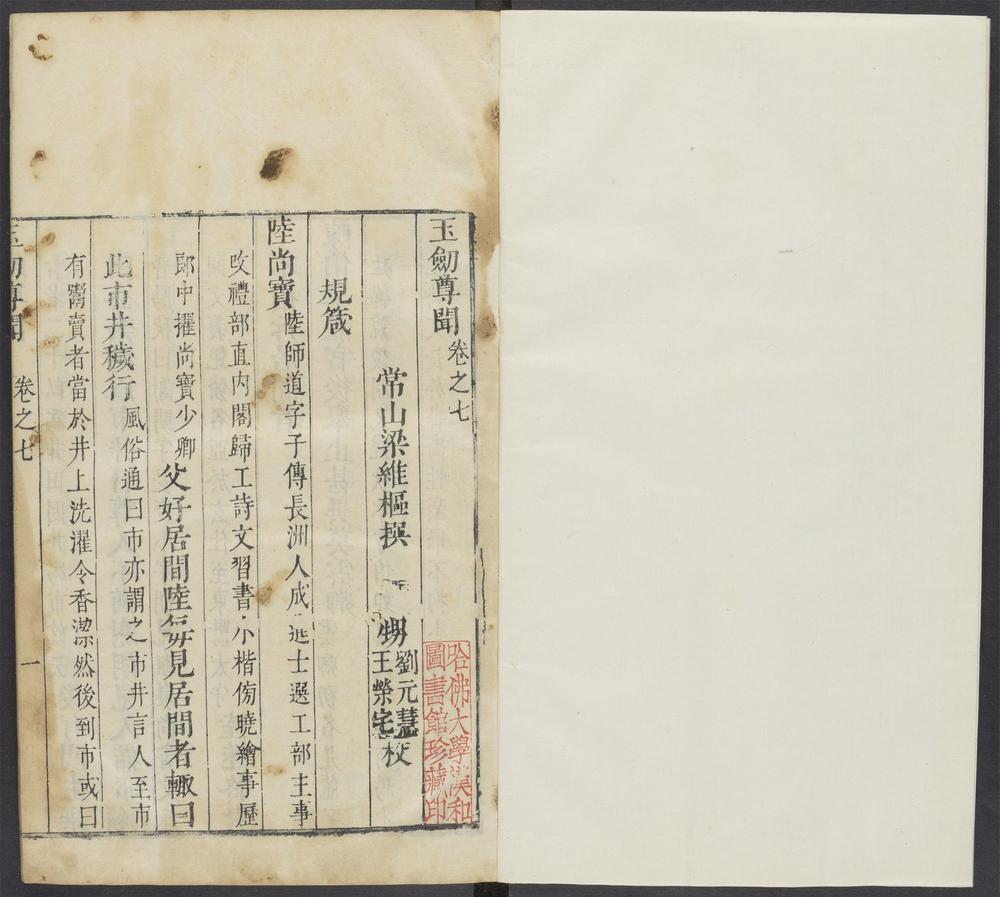 玉劒尊聞卷之七
常山梁維樞撰
甥劉元慧王榮宅校
規箴
陸尚寶陸師道字子傳長洲人成進士選工部主事
改禮部直内閣歸工詩文習書小楷傍曉繪事歷
郎中擢尚寶少卿父好居間陸每見居間者輙曰
此市井穢行風俗通曰市亦謂之市井言人至市
有鬻賣者當於井上洗濯令香潔然後到市或曰
玉劒尊聞
卷之七
一
哈佛大學漢和圖書館珍藏印